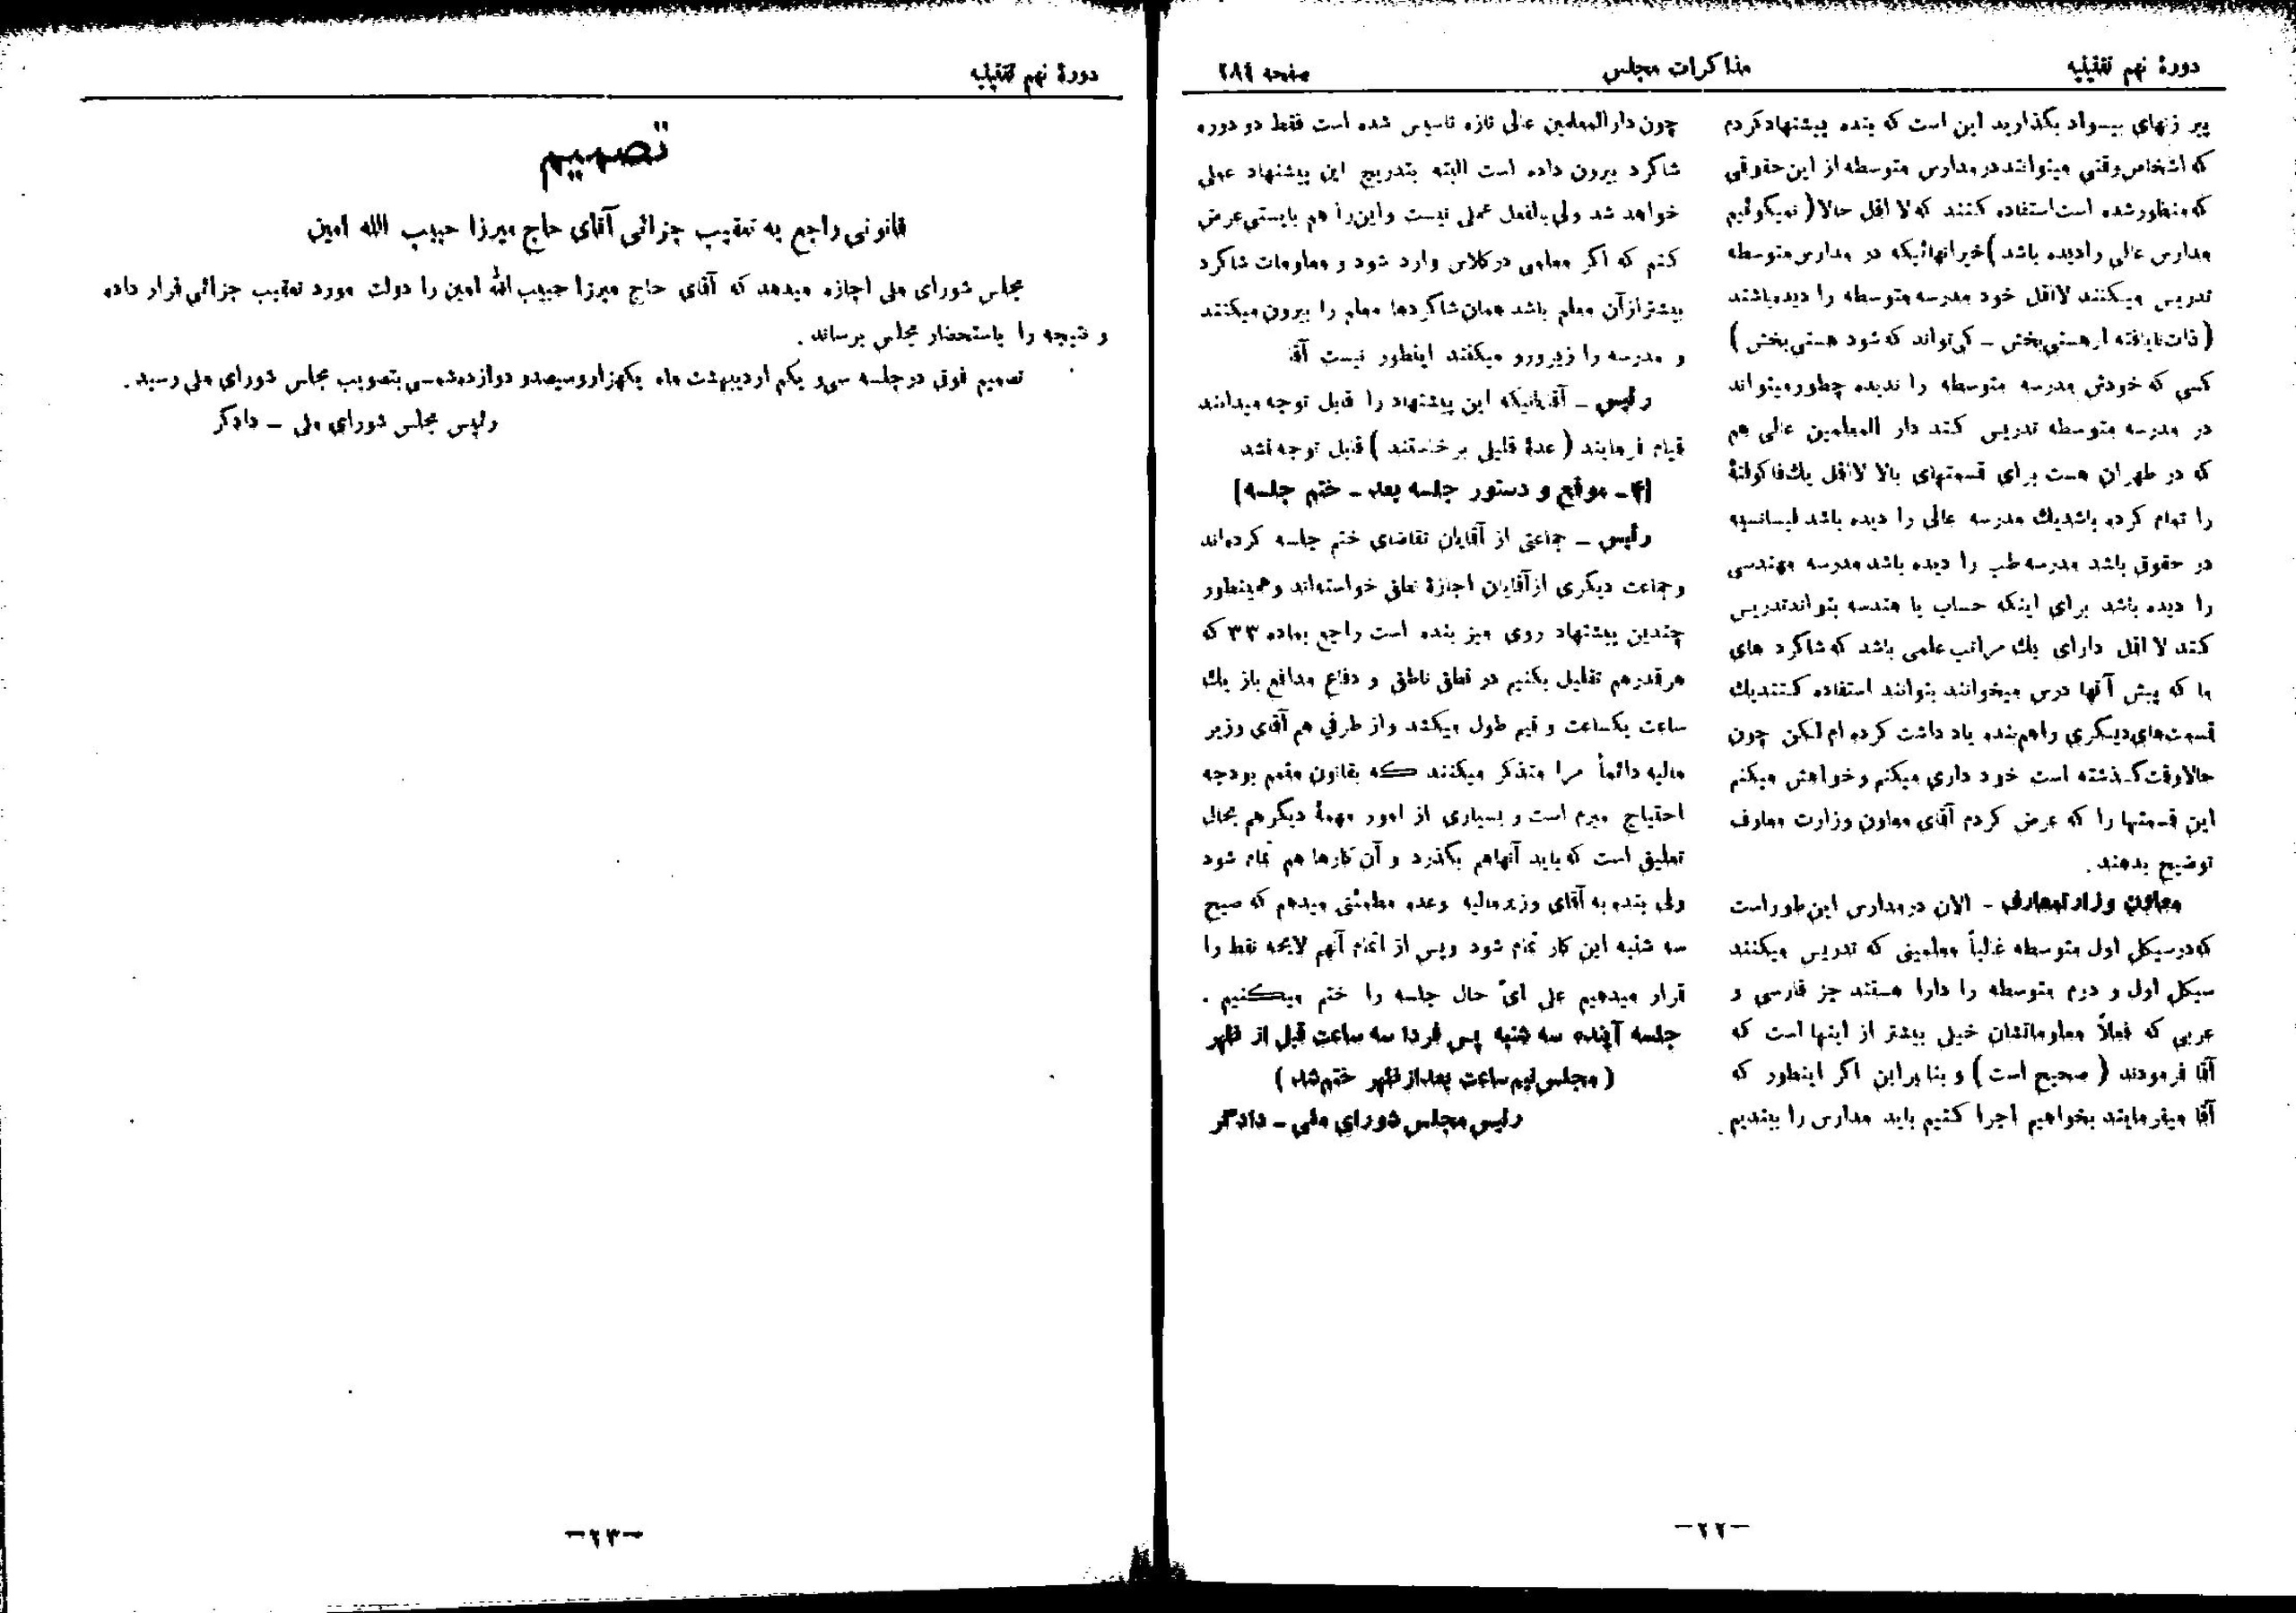 دورهٔ نهم تقنینیه
مذاکرات مجلس
صفحه ۲۸۴
پیر زنهای بیسواد بگذارید این است که بنده پیشنهاد کردم
که اشخاص وقتی میتوانند در مدارس متوسطه از این حقوقی
که منظور شده است استفاده کنند که لا اقل حالا ( نمیگوئیم
مدارس عالی را دیده باشد ) خیر انهائیکه در مدارس متوسطه
تدریس میکنند لااقل خود مدرسه متوسطه را دیده باشند
( ذات نایافته از هستی بخش ــ کی تواند که شود هستی بخش )
کسی که خودش مدرسه متوسطه را ندیده چطور میتواند
در مدرسه متوسطه تدریس کند دار المعلمین عالی هم
که در طهران هست برای قسمتهای بالا لااقل یك فاکولتهٔ
را تمام کرده باشد یك مدرسه عالی را دیده باشد لیسانسیه
در حقوق باشد مدرسه طب را دیده باشد مدرسه مهندسی
را دیده باشد برای اینکه حساب یا هندسه بتواند تدریس
کند لا اقل دارای یك مراتب علمی باشد که شاگرد های
ما که پیش آنها درس میخوانند بتوانند استفاده کنند یك
قسمت های دیگری را هم بنده یاد داشت کرده ام لکن چون
حالا وقت گذشته است خود داری میکنم و خواهش میکنم
این قسمتها را که عرض کردم آقای معاون وزارت معارف
توضیح بدهند .
معاون وزارت معارف - الان در مدارس این طور است
که در سیکل اول متوسطه غالباً معلمینی که تدریس میکنند
سیکل اول و دوم متوسطه را دارا هستند جز فارسی و
عربی که فعلاً معلوماتشان خیلی بیشتر از اینها است که
آقا فرمودند ( صحیح است ) و بنا براین اگر اینطور که
آقا میفرمایند بخواهیم اجرا کنیم باید مدارس را ببندیم
چون دارالمعلمین عالی تازه تاسیس شده است فقط دو دوره
شاگرد بیرون داده است البته بتدریج این پیشنهاد عملی
خواهد شد ولی بالفعل عملی نیست و این را هم بایستی عرض
کنم که اگر معلمی در کلاس وارد شود و معلومات شاگرد
بیشتر از آن معلم باشد همان شاگردها معلم را بیرون میکنند
و مدرسه را زیر و رو میکنند اینطور نیست آقا
رئیس ــ آقایانیکه این پیشنهاد را قابل توجه میدانند
قیام فرمایند ( عدهٔ قلیلی برخاستند ) قابل توجه نشد
[۴ـ موقع و دستور جلسه بعد ــ ختم جلسه]
رئیس ــ جماعتی از آقایان تقاضای ختم جلسه کرده اند
و جماعت دیگری از آقایان اجازهٔ نطق خواسته اند و همینطور
چندین پیشنهاد روی میز بنده است راجع بماده ۳۳ که
هر قدر هم تقلیل بکنیم در نطق ناطق و دفاع مدافع باز یك
ساعت یکساعت و نیم طول میکشد و از طرفی هم آقای وزیر
مالیه دائماً مرا متذکر میکنند که بقانون متمم بودجه
احتیاج مبرم است و بسیاری از امور مهمهٔ دیگر هم بحال
تعلیق است که باید آنها هم بگذرد و آن کارها هم تمام شود
ولی بنده به آقای وزیر مالیه وعده مطمئنی میدهم که صبح
سه شنبه این کار تمام شود و پس از اتمام آنهم لایحه نفط را
قرار میدهیم علی ایّ حال جلسه را ختم میکنیم .
جلسه آینده سه شنبه پس فردا سه ساعت قبل از ظهر
( مجلس نیم ساعت بعد از ظهر ختم شد )
رئیس مجلس شورای ملی ــ دادگر
ــ۲۲ــ
دورهٔ نهم تقنینیه
تصمیم
قانونی راجع به تعقیب جزائی آقای حاج میرزا حبیب الله امین
مجلس شورای ملی اجازه میدهد که آقای حاج میرزا حبیب الله امین را دولت مورد تعقیب جزائی قرار داده
و نتیجه را باستحضار مجلس برساند .
تصمیم فوق در جلسه سی و یکم اردیبهشت ماه یکهزار و سیصد و دوازده شمسی بتصویب مجلس شورای ملی رسید .
رئیس مجلس شورای ملی ــ دادگر
ــ۲۳ــ